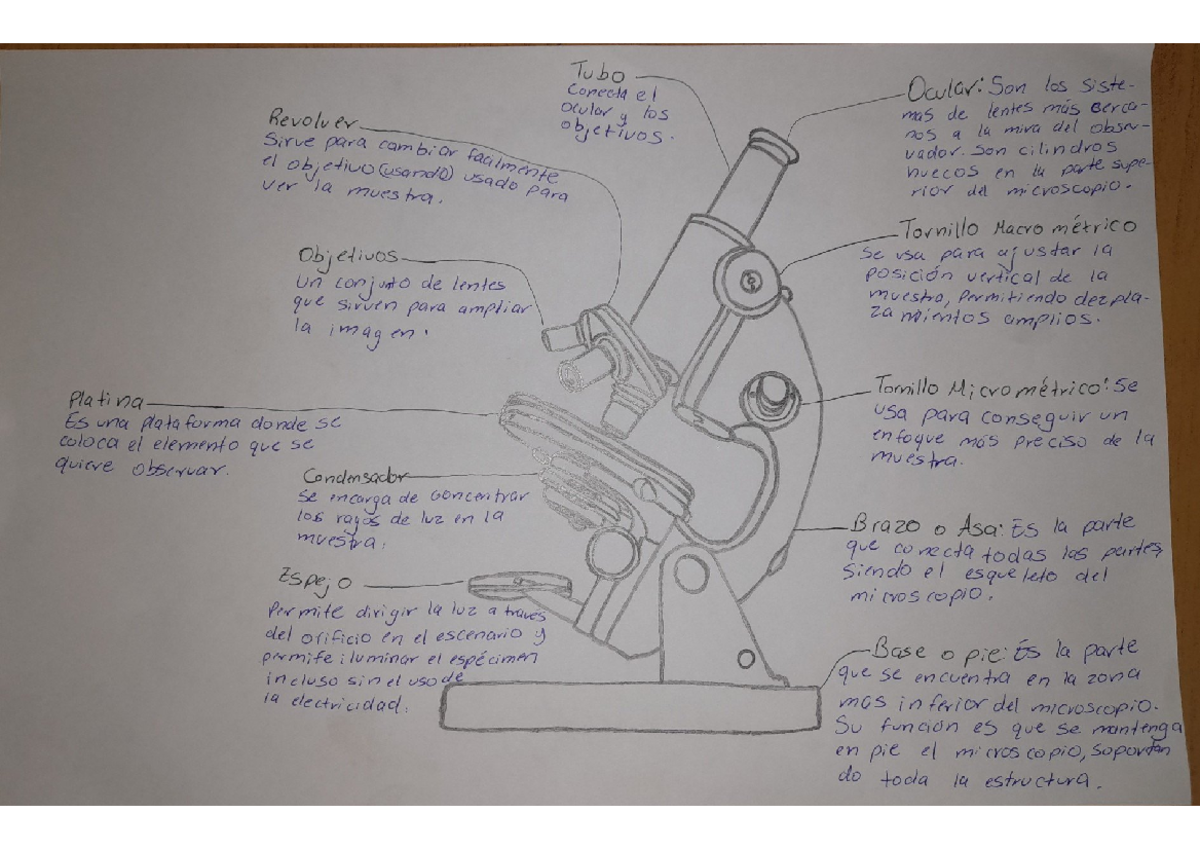 Tubo
Conecta el
ocular y los
objetivos.
Revolver
Sirve para cambiar facilmente
el objetivo (usando) usado para
ver la muestra.
Objetivos
Un conjuto de lentes
que sirven para ampliar
la imagen.
Platina
Es una plataforma donde se
coloca el elemento que se
quiere observar.
Condensador
Se encarga de concentrar
los rayos de luz en la
muestra.
Espejo
Permite dirigir la luz a través
del orificio en el escenario y
permite iluminar el espécimen
incluso sin el uso de
la electricidad.
Ocular: Son los siste-
mas de lentes más cerca-
nos a la mira del obser-
vador. Son cilindros
huecos en la parte supe-
rior del microscopio.
Tornillo Macro métrico
Se usa para ajustar la
posición vertical de la
muestra, permitiendo dezpla-
zamientos amplios.
Tornillo Micrométrico: Se
usa para conseguir un
enfoque más preciso de la
muestra.
Brazo o Asa: Es la parte
que conecta todas las partes,
siendo el esqueleto del
microscopio.
Base o pie: Es la parte
que se encuentra en la zona
más inferior del microscopio.
Su función es que se mantenga
en pie el microscopio, soportan
do toda la estructura.